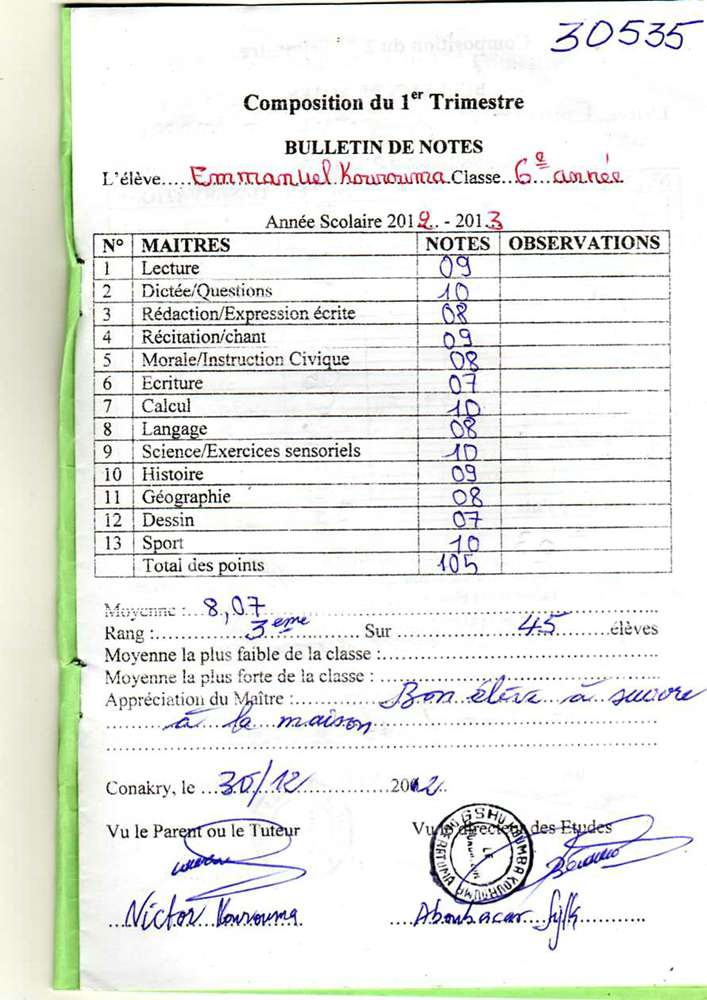 30535
Composition du 1er Trimestre
BULLETIN DE NOTES
L'élève.....Emmanuel Kourouma.Classe..6e année
Année Scolaire 2012. - 2013
N° MAITRES NOTES OBSERVATIONS
1 Lecture 09
2 Dictée/Questions 10
3 Rédaction/Expression écrite 08
4 Récitation/chant 09
5 Morale/Instruction Civique 08
6 Ecriture 07
7 Calcul 10
8 Langage 08
9 Science/Exercices sensoriels 10
10 Histoire 09
11 Géographie 08
12 Dessin 07
13 Sport 10
Total des points 105
Moyenne :..8,07
Rang :............3eme............ Sur ..................45............élèves
Moyenne la plus faible de la classe :
Moyenne la plus forte de la classe :
Appréciation du Maître :..............Bon élève à suivre
à la maison
Conakry, le ...30/12..................2012
Vu le Parent ou le Tuteur Vu le directeur des Etudes
Victor Kourouma Aboubacar Sylla